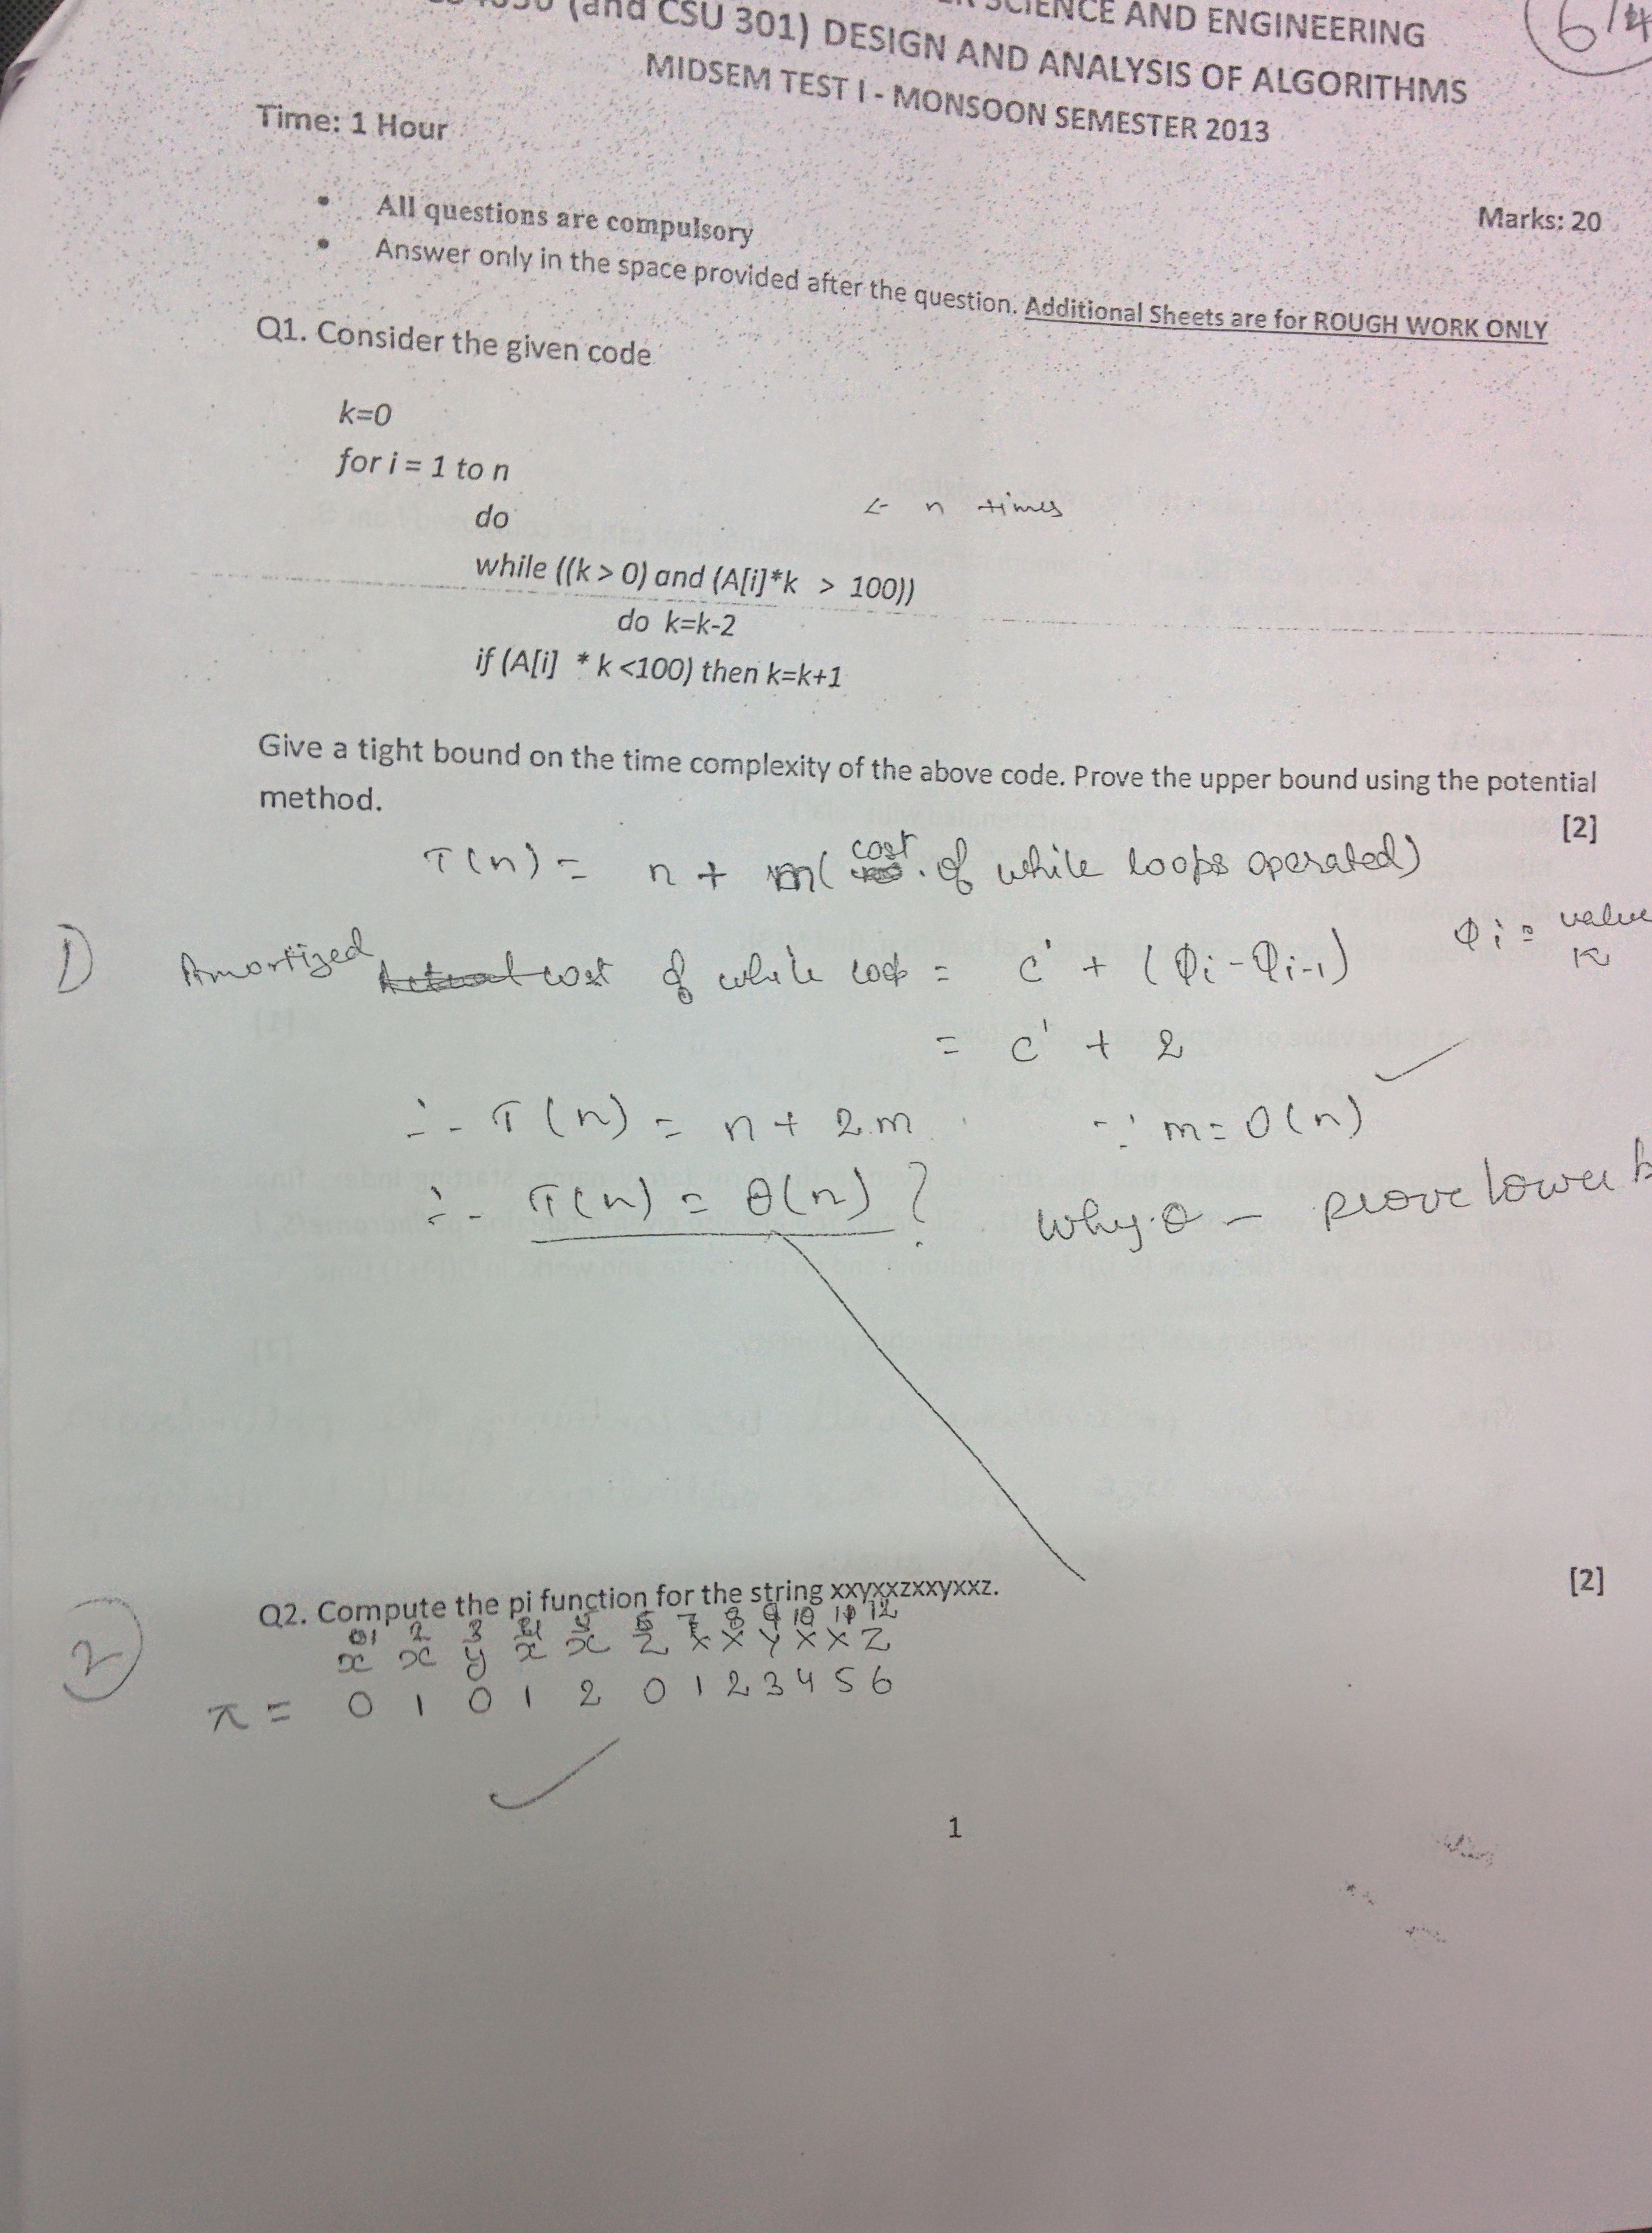 (and CSU 301) DESIGN AND ANALYSIS OF ALGORITHMS
SCIENCE AND ENGINEERING
MIDSEM TEST I - MONSOON SEMESTER 2013
Time: 1 Hour
Marks: 20
• All questions are compulsory
• Answer only in the space provided after the question. Additional Sheets are for ROUGH WORK ONLY
Q1. Consider the given code
k=0
for i = 1 to n
do ← n times
while ((k > 0) and (A[i]*k > 100))
do k=k-2
if (A[i] * k <100) then k=k+1
Give a tight bound on the time complexity of the above code. Prove the upper bound using the potential
method.
[2]
T(n) = n + m( cost of while loops operated)
1) Amortized cost of while loop = c' + (Φi - Φi-1) Φi = value
k
= c' + 2
∴ T(n) = n + 2m ∵ m = O(n)
∴ T(n) = θ(n) ? Why θ - prove lower
Q2. Compute the pi function for the string xxyxxzxxyxxz.
[2]
1 2 3 4 5 6 7 8 9 10 11 12
2 x x y x x z x x y x x z
π = 0 1 0 1 2 0 1 2 3 4 5 6
1